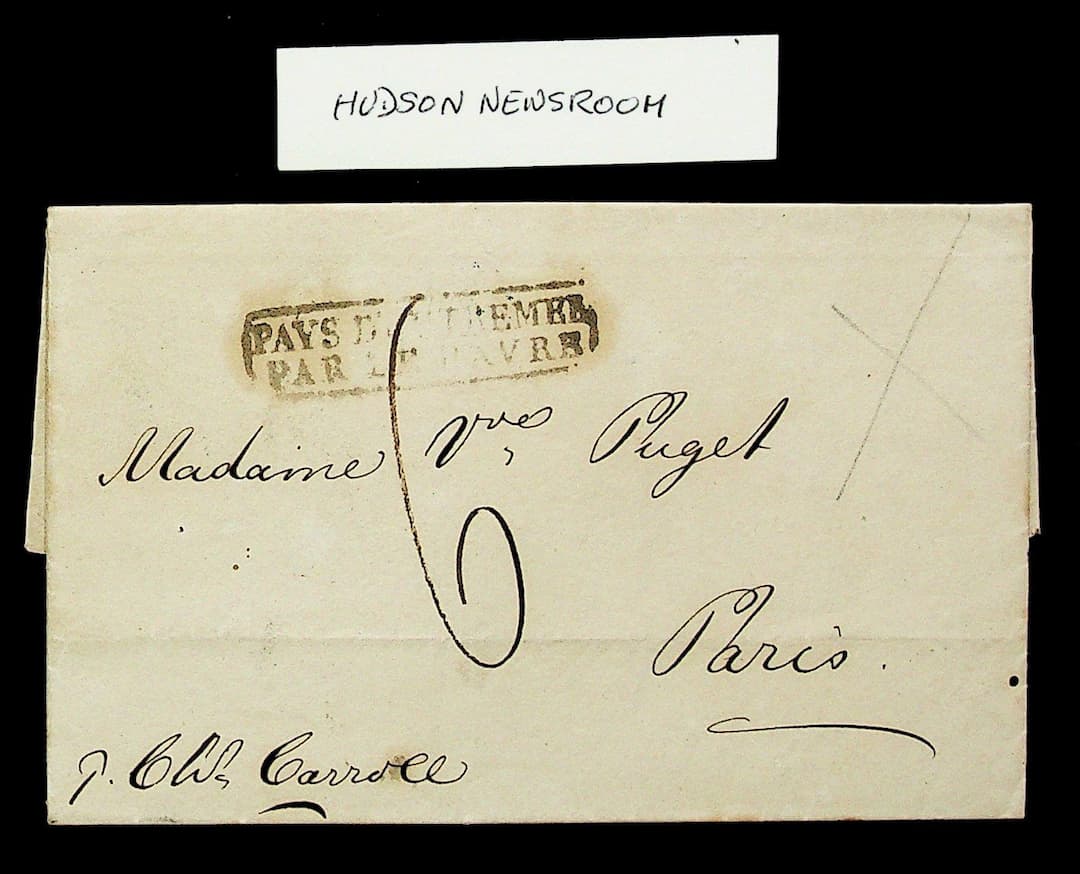 HUDSON NEWSROOM
PAYS D'OUTREMER
PAR LE HAVRE
6
Madame Vve Puget
Paris.
p. Chs Carroll